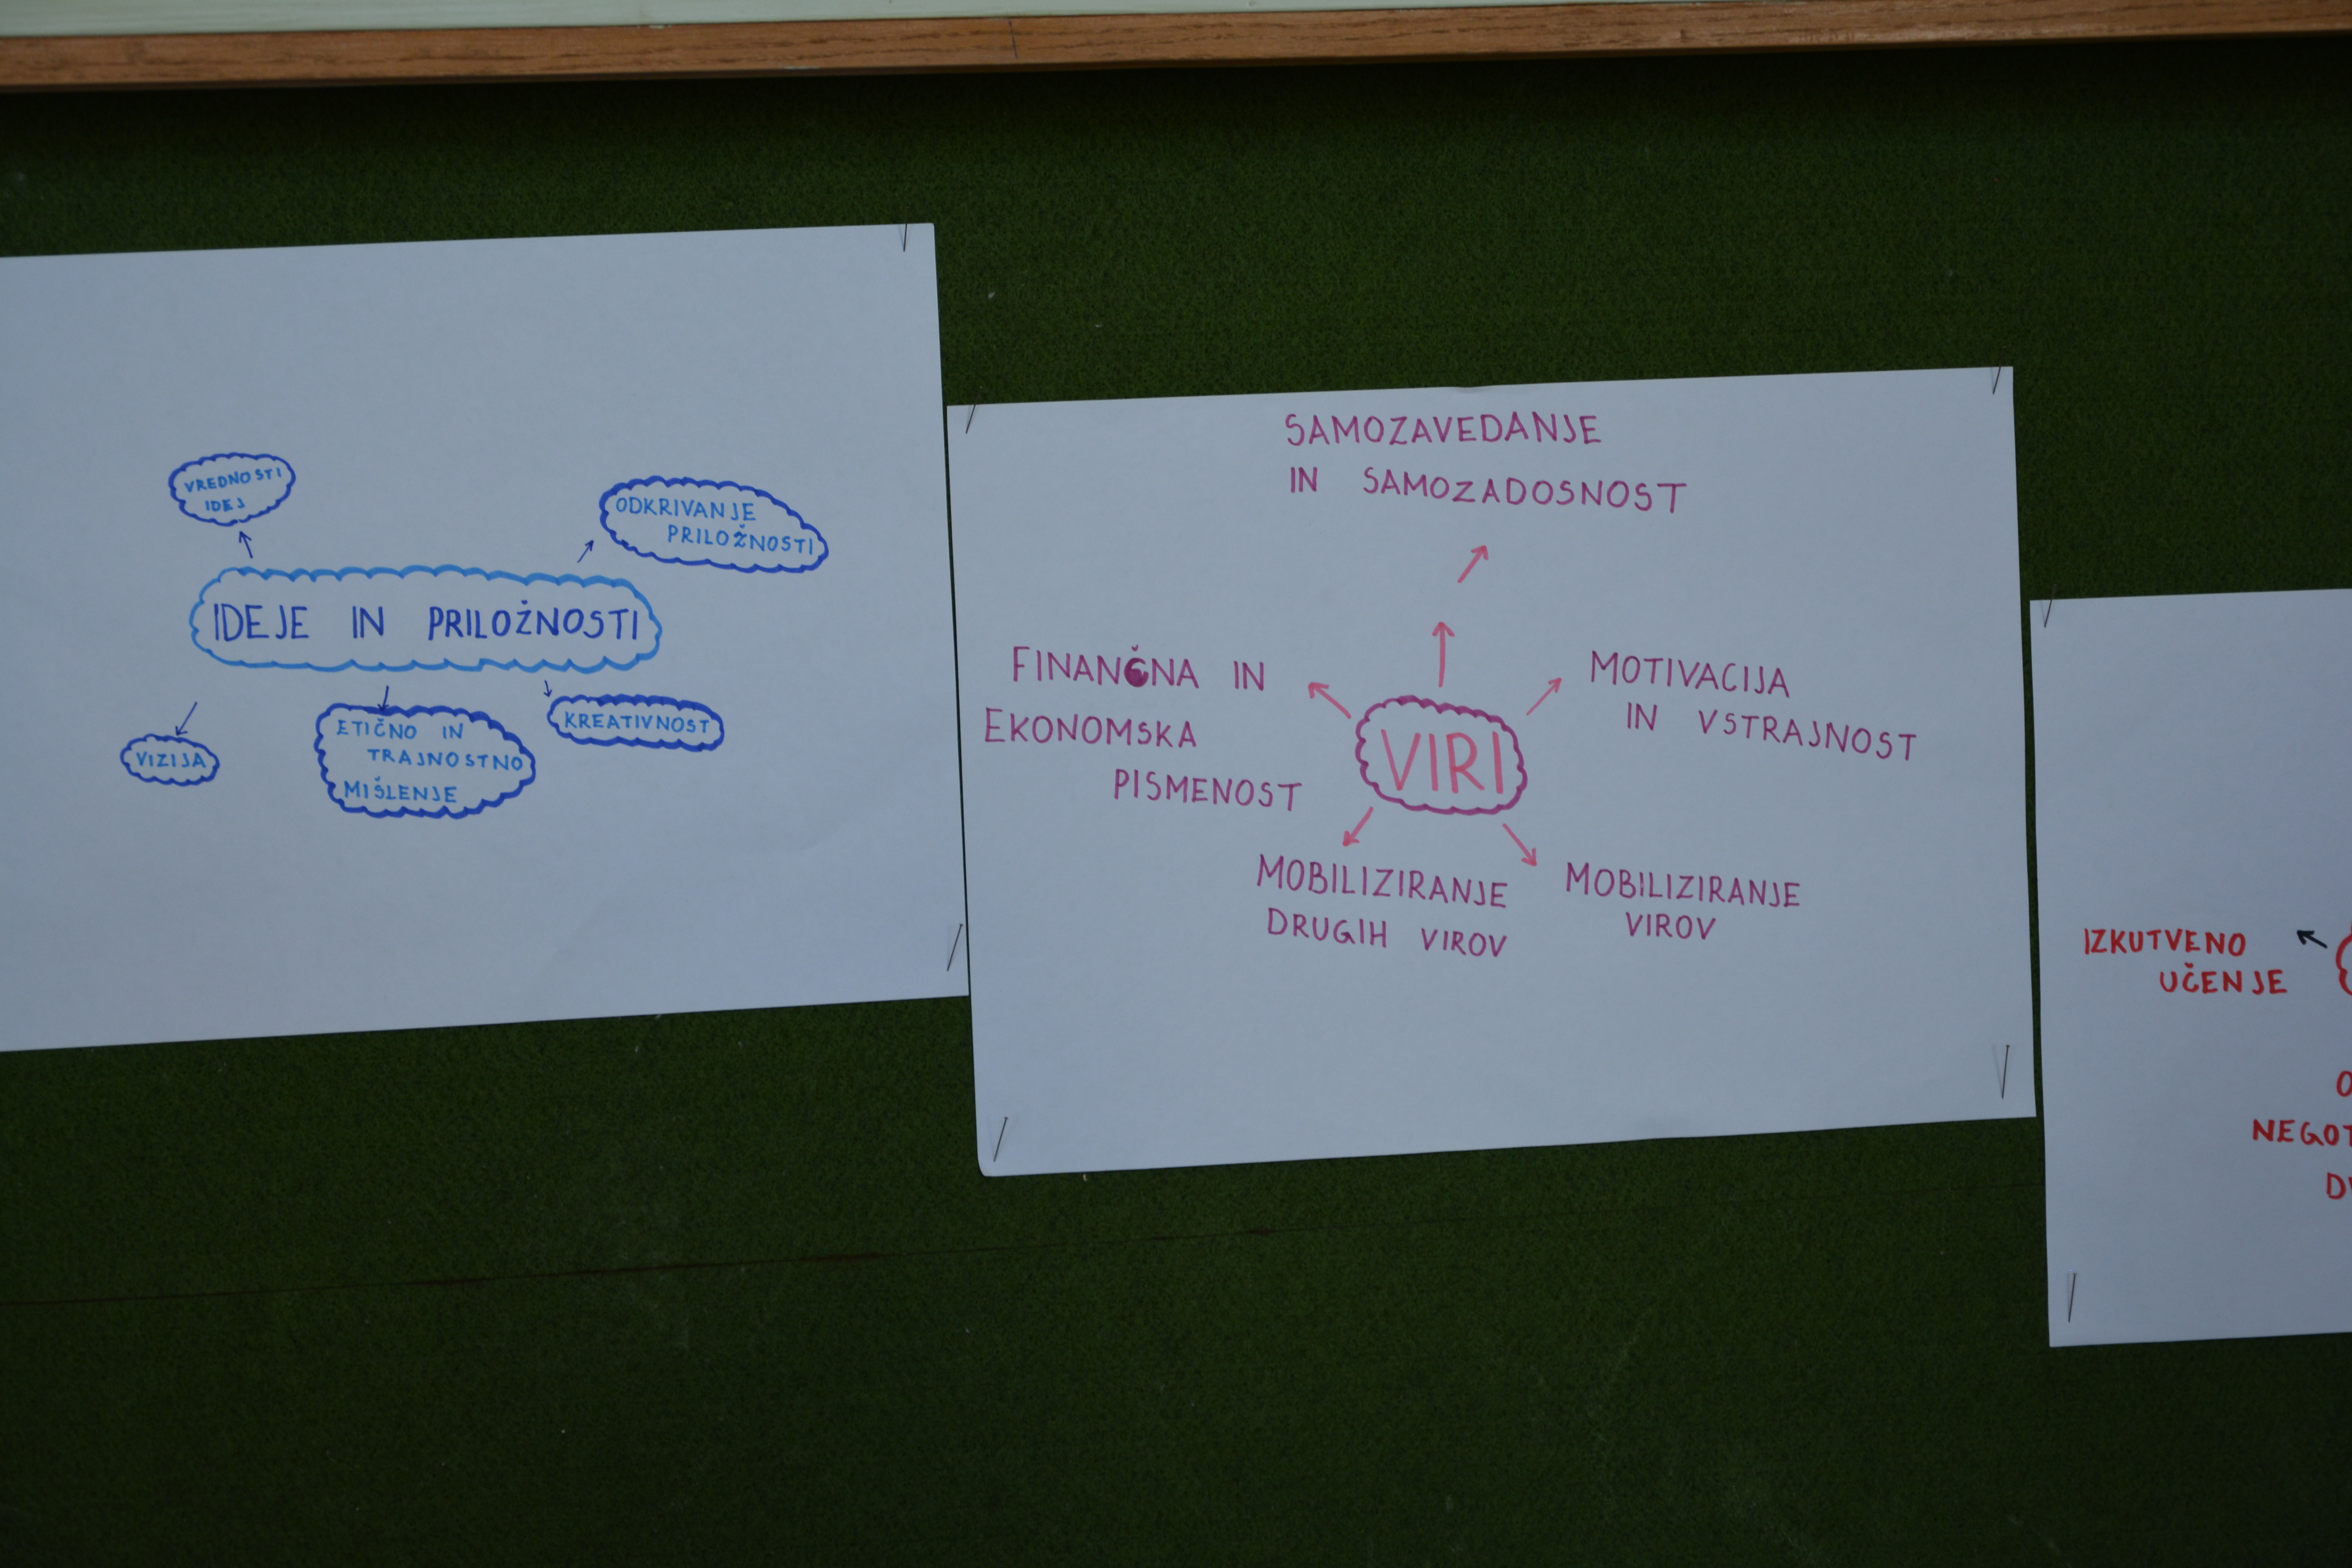 VREDNOSTI
IDEJ
ODKRIVANJE
PRILOŽNOSTI
IDEJE IN PRILOŽNOSTI
VIZIJA
ETIČNO IN
TRAJNOSTNO
MIŠLENJE
KREATIVNOST
SAMOZAVEDANJE
IN SAMOZADOSNOST
FINANČNA IN
EKONOMSKA
PISMENOST
MOTIVACIJA
IN VSTRAJNOST
VIRI
MOBILIZIRANJE
DRUGIH VIROV
MOBILIZIRANJE
VIROV
IZKUTVENO
UČENJE